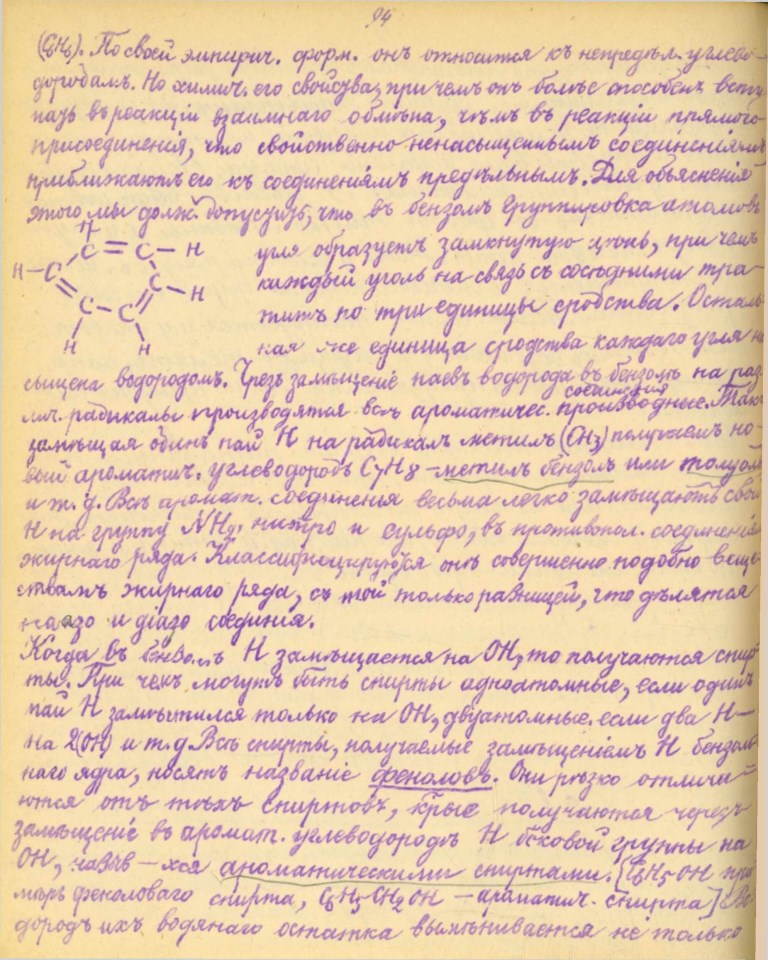 94
(C6H6). По своей эмпирич. форм. онъ относится къ непредѣл. углево-
дородамъ. Но химич. его свойства, при чемъ онъ болѣе способенъ всту
пать въ реакціи взаимнаго обмѣна, чѣмъ въ реакціи прямого
присоединенія, что свойственно ненасыщеннымъ соединеніямъ
приближаютъ его къ соединеніямъ предѣльнымъ. Для объясненія
этого мы долж. допустить, что въ бензолѣ группировка атомовъ
угля образуетъ замкнутую цѣпь, при чемъ
каждый уголь на связь съ сосѣдними тра-
титъ по три единицы сродства. Осталь
ная же единица сродства каждаго угля на
H
C = C – H
H – C
C – H
C C
H H
сыщена водородомъ. Чрезъ замѣщеніе паевъ водорода въ бензолѣ на раз
лич. радикалы производятся всѣ ароматичес. производные. Такъ
соединенія
замѣщая одинъ пай H на радикалъ метилъ (CH3) получаемъ но-
вый ароматич. углеводородъ C7H8 – метилъ бензолъ или толуолъ
и т. д. Всѣ аромат. соединенья весьма легко замѣщаютъ свой
H на группу NH2, нитро и сульфо, въ противопол. соединенія
жирнаго ряда. Классифицируются онѣ совершенно подобно веще
ствамъ жирнаго ряда, съ той только разницей, что дѣлятся
на азо и діазо соединія.
Когда въ бензолѣ H замѣщается на OH, то получаются спир
ты. При чемъ могутъ быть спирты одноатомные, если одинъ
пай H замѣстился только на OH, двуатомные если два H –
на 2(OH) и т. д. Всѣ спирты, получаемые замѣщеніемъ H бензоль
наго ядра, носятъ названіе феноловъ. Они рѣзко отлича-
ются отъ тѣхъ спиртовъ, к-рые получаются черезъ
замѣщеніе въ аромат. углеводородѣ H боковой группы на
OH, назыв – хся ароматическими спиртами. [C6H5OH при
мѣръ феноловаго спирта, C6H5CH2OH – араматич. спирта] Во
дородъ ихъ водянаго остатка вымѣнивается не только